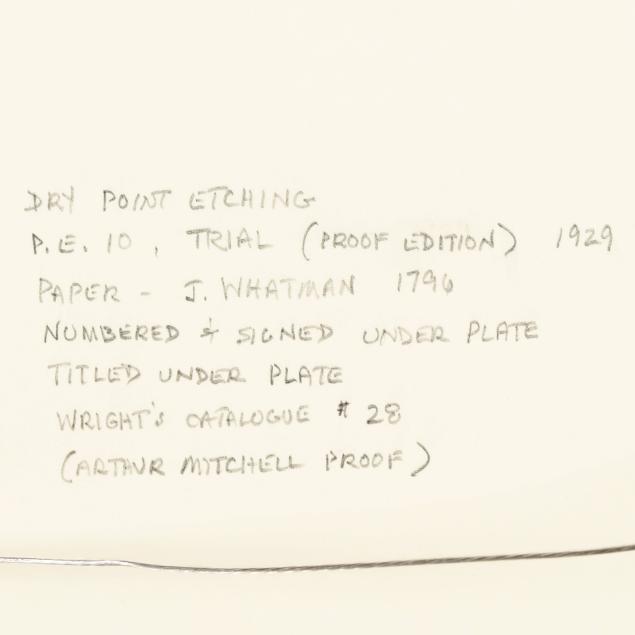 DRY POINT ETCHING
P.E. 10, TRIAL (PROOF EDITION) 1929
PAPER - J. WHATMAN 1796
NUMBERED & SIGNED UNDER PLATE
TITLED UNDER PLATE
WRIGHT'S CATALOGUE # 28
(ARTHUR MITCHELL PROOF)